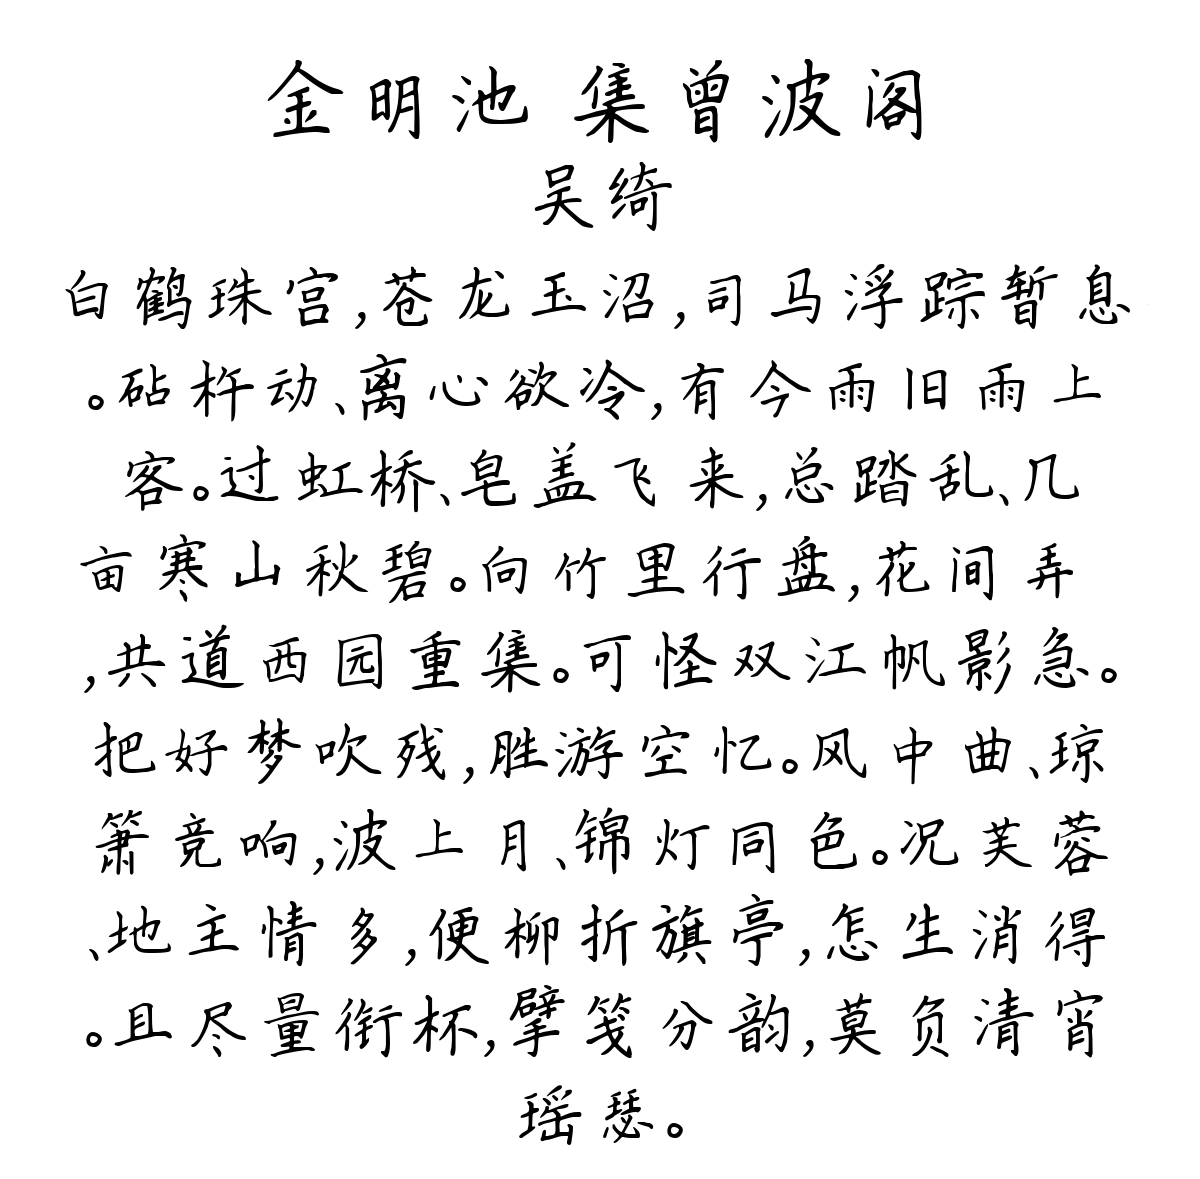 金明池 集曾波阁
吴绮
白鹤珠宫,苍龙玉沼,司马浮踪暂息
。砧杵动、离心欲冷,有今雨旧雨上
客。过虹桥、皂盖飞来,总踏乱、几
亩寒山秋碧。向竹里行盘,花间弄
,共道西园重集。可怪双江帆影急。
把好梦吹残,胜游空忆。风中曲、琼
箫竞响,波上月、锦灯同色。况芙蓉
、地主情多,便柳折旗亭,怎生消得
。且尽量衔杯,擘笺分韵,莫负清宵
瑶瑟。